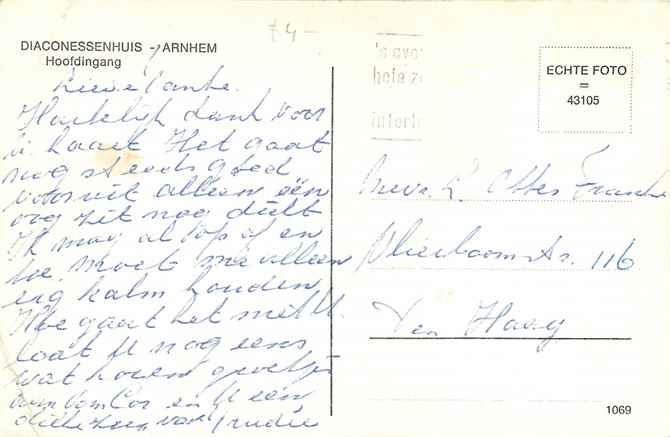 £4-
DIACONESSENHUIS - ARNHEM
Hoofdingang
Lieve Tante.
Hartelijk dank voor
u kaart Het gaat
nog steeds goed
vooruit alleen één
oog zit nog dicht
Ik mag al op af en
toe. Moet me alleen
erg kalm houden.
Hoe gaat het met U.
laat U nog eens
wat horen groetjes
aan Cor en U een
dikke zoen van Trudie
's avo
hele
interl
ECHTE FOTO
=
43105
Mevr.
116
Den Haag
1069